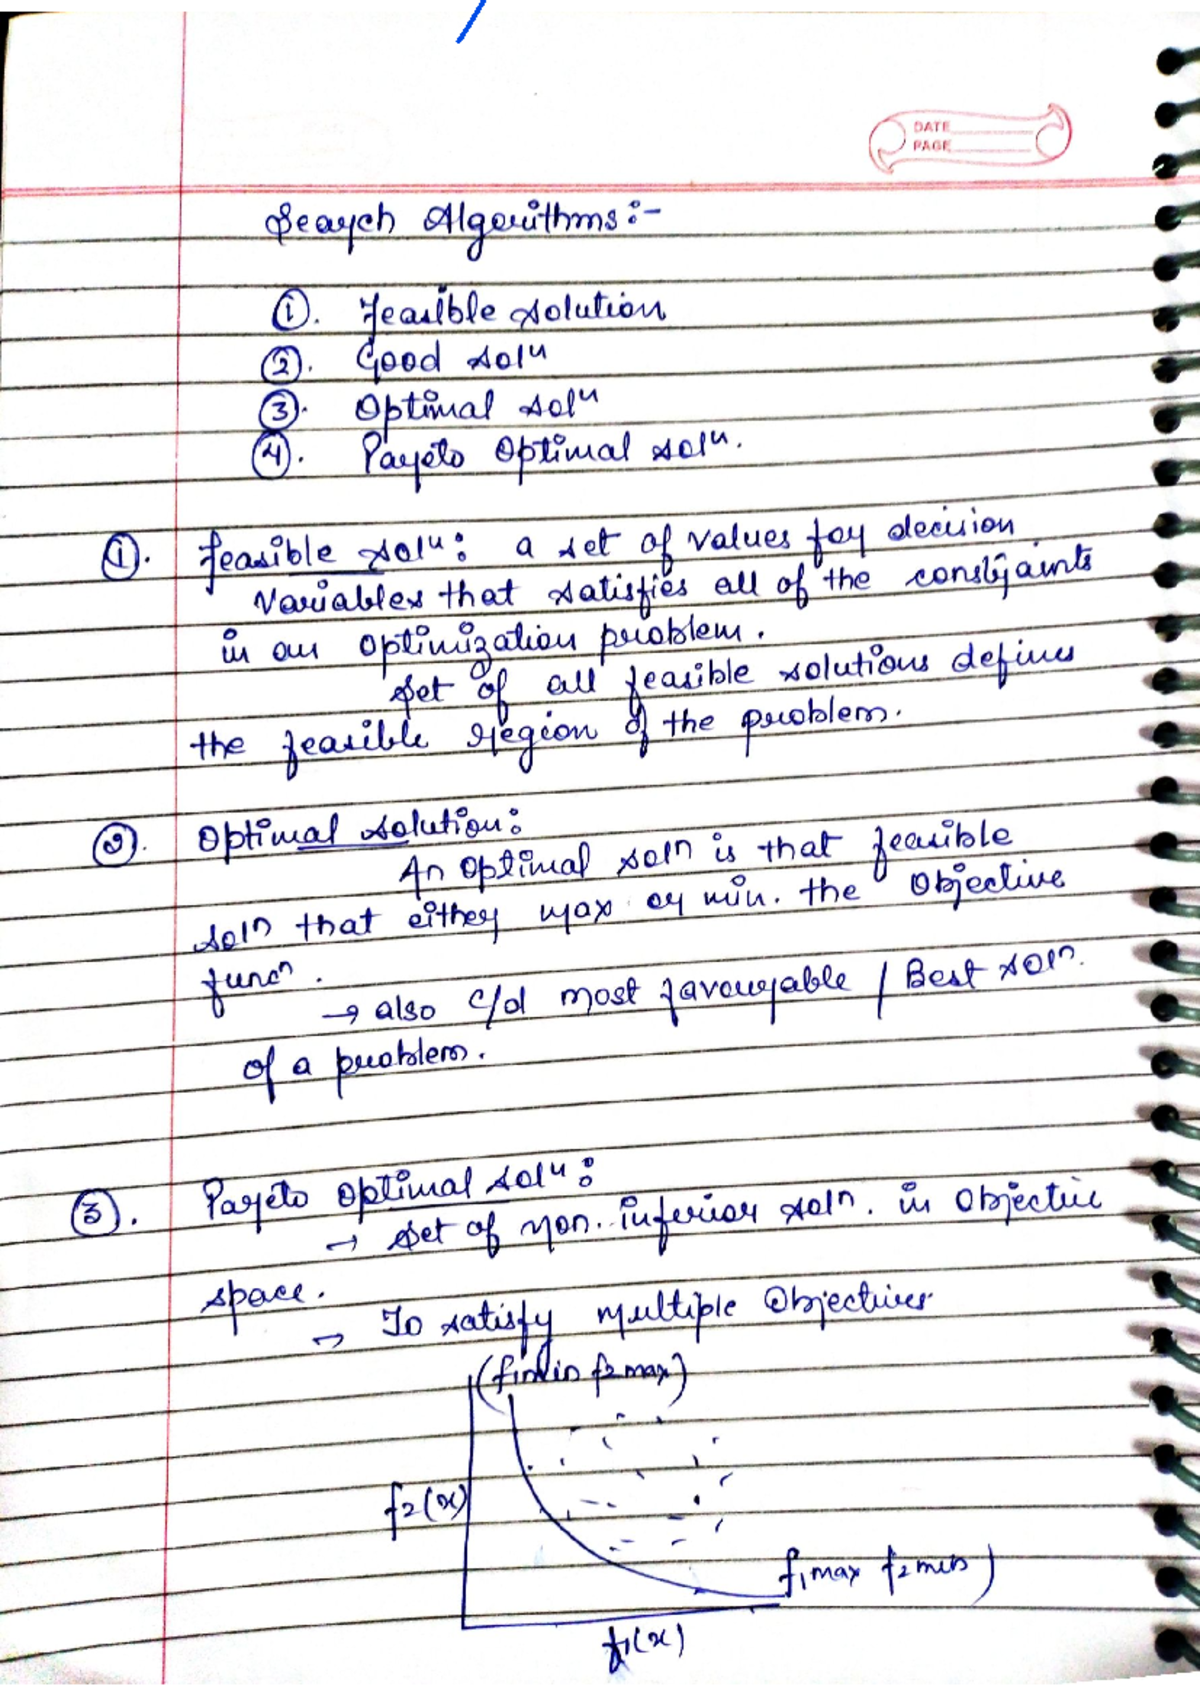 DATE
PAGE
Search Algorithms:-
①. Feasible solution
②. Good solⁿ
③. Optimal solⁿ
④. Pareto Optimal solⁿ.
①. feasible solⁿ: a set of values for decision
variables that satisfies all of the constraints
in an optimization problem.
Set of all feasible solutions defines
the feasible region of the problem.
②. Optimal solution:
An optimal solⁿ is that feasible
solⁿ that either max or min. the Objective
funcⁿ.
→ also c/d most favourable / Best solⁿ.
of a problem.
③. Pareto optimal solⁿ:
→ Set of non. inferior solⁿ. in Objective
space.
→ To satisfy multiple Objectives
(f1min f2max)
f2(x)
f1max f2min)
f1(x)